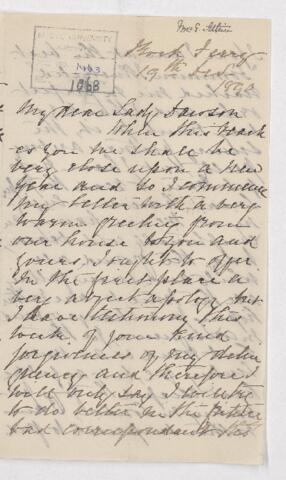 Rock Ferry
19th Decr
My dear Lady Dawson
When this reach
es you we shall be
very close upon a new
year and so I commence
my letter with a very
warm greeting from
our house to you and
yours. I ought to offer
in the first place a
very abject apology but
I have testimony this
week of your kind
forgiveness of my delin
quency and therefore I
will only say I will try
to do better in the future
bad correspondent
McGILL UNIVERSITY
1968